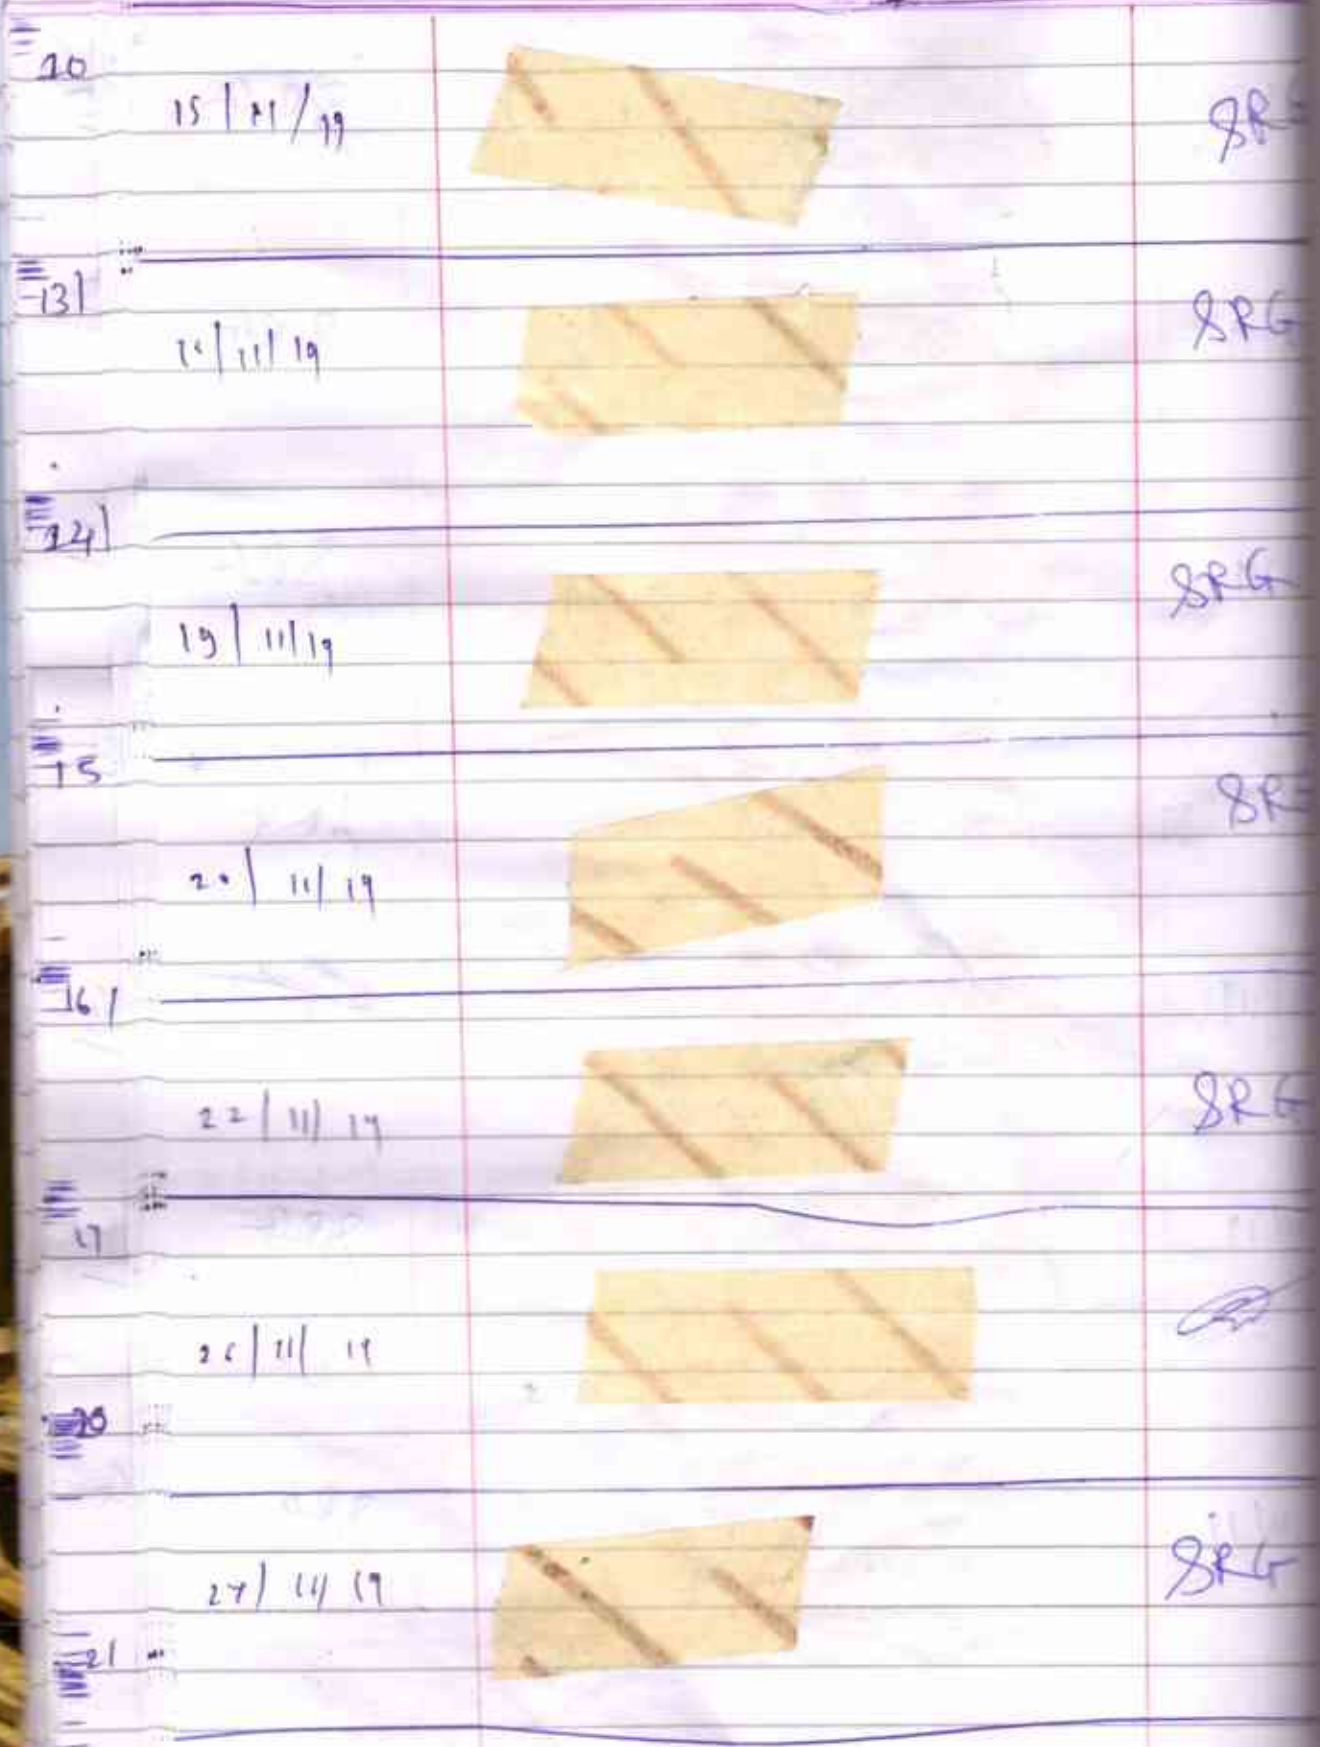 10
15/11/19 SRG
13)
11/19 SRG
14)
19/11/19 SRG
15
20/11/19 SR
16)
22/11/19 SRG
17
26/11/19
20
27/11/19 SRG
21